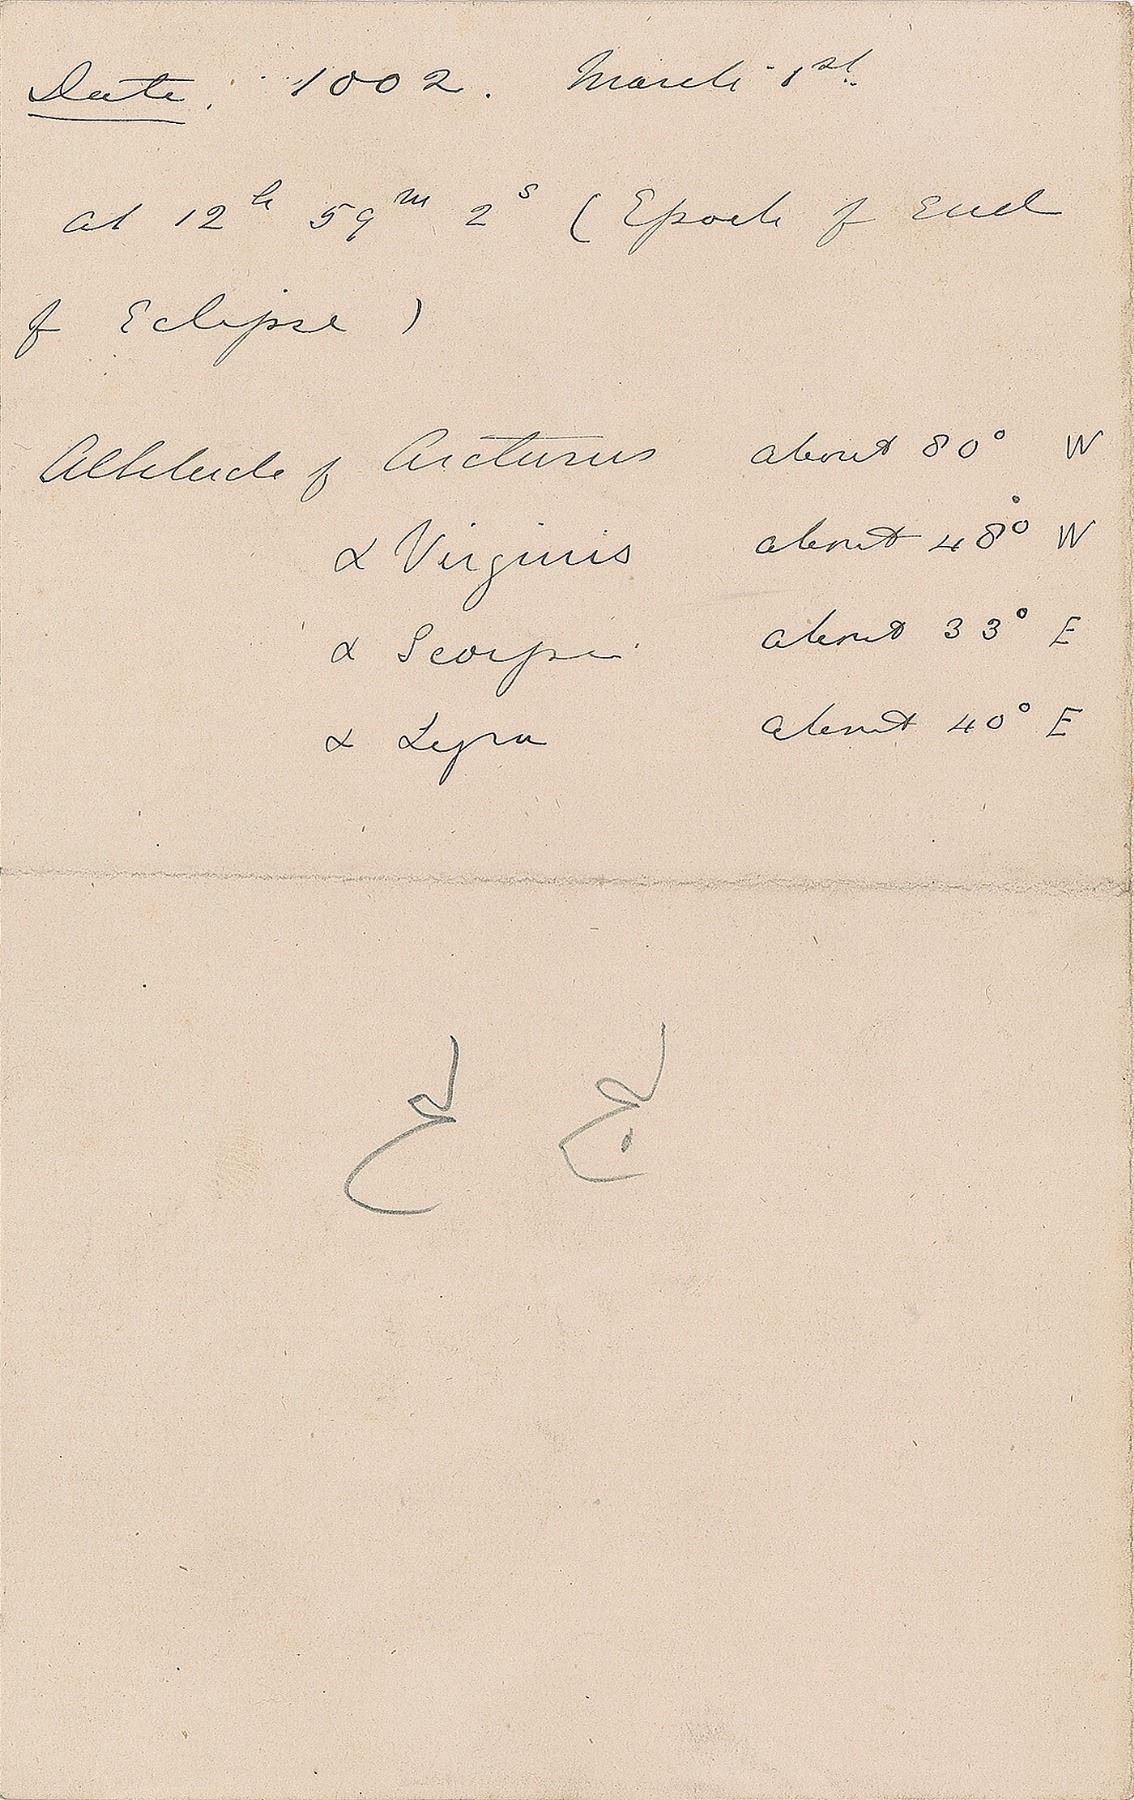 Date. 1002. March 1st.
at 12h 59m 2s (Epoch of End
of Eclipse)
Altitude of Arcturus about 80° W
α Virginis about 48° W
α Scorpii about 33° E
α Lyra about 40° E